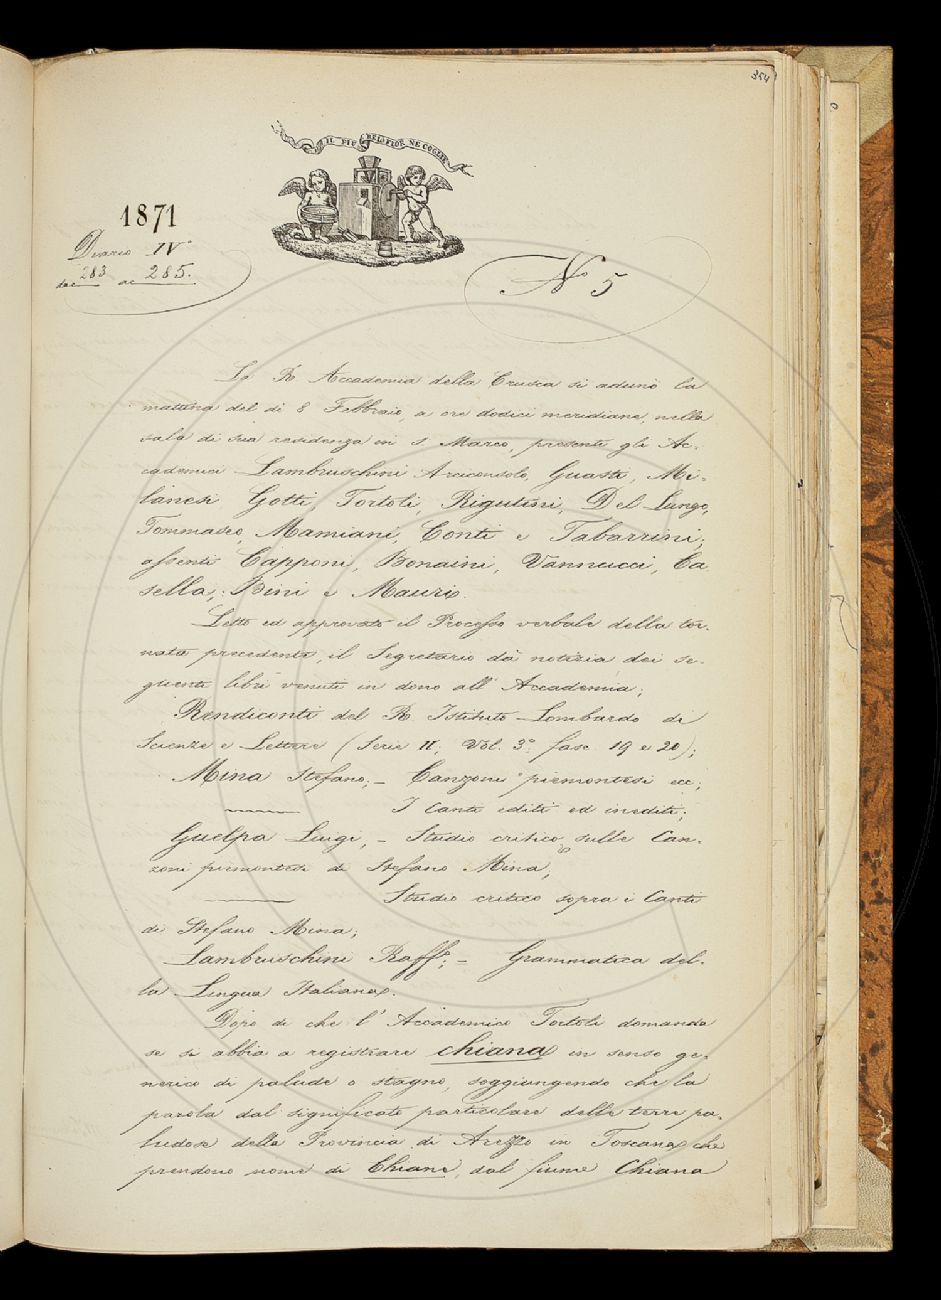 354
IL PIÙ BEL FIOR NE COGLIE
1871
Diario IV°
dac 283 ac 285.
N° 5
La R. Accademia della Crusca si adunò la
mattina del dì 8 Febbraio, a ore dodici meridiane, nella
sala di sua residenza in S. Marco, presenti gli Ac-
cademici Lambruschini Arciconsolo, Guasti, Mi-
lanesi Gotti Tortoli, Rigutini, Del Lungo,
Tommaseo, Mamiani, Conti e Tabarrini;
assenti Capponi, Bonaini, Vannucci, Ca
sella, Bini e Mauri.
Letto ed approvato il Processo verbale della tor-
nata precedente, il Segretario dà notizia dei se-
guenti libri venuti in dono all'Accademia;
Rendiconti del R. Istituto Lombardo di
Scienze e Lettere (Serie II; Vol. 3.° fasc. 19 e 20);
Mina Stefano; - Canzoni piemontesi ecc;
——— I Canti editi ed inediti;
Guelpa Luigi, - Studio critico sulle Can-
zoni piemontesi di Stefano Mina,
——— Studio critico sopra i Canti
di Stefano Mina;
Lambruschini Raff.e; - Grammatica del-
la Lingua Italiana.
Dopo di che l'Accademico Tortoli domanda
se si abbia a registrare chiana in senso ge-
nerico di palude o stagno, soggiungendo che la
parola dal significato particolare delle terre pa-
ludose della Provincia di Arezzo in Toscana, che
prendono nome di Chiane, dal fiume Chiana